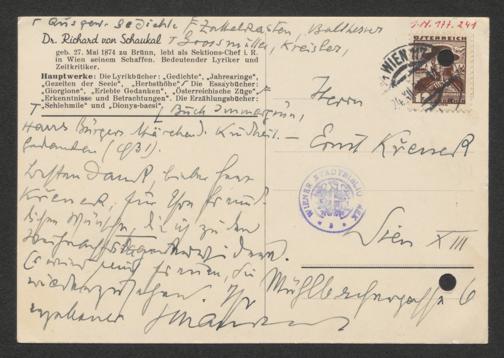 I.N. 177.241
Ausgew. Gedichte, Zettelkasten, Balthasar
Dr. Richard von Schaukal Grossmüller, Kreisler,
geb. 27. Mai 1874 zu Brünn, lebt als Sektions-Chef i. R.
in Wien seinem Schaffen. Bedeutender Lyriker und
Zeitkritiker.
Hauptwerke: Die Lyrikbücher: „Gedichte", „Jahresringe",
„Gezeiten der Seele", „Herbsthöhe" Die Essaybücher:
„Giorgione", „Erlebte Gedanken", „Österreichische Züge"
„Erkenntnisse und Betrachtungen". Die Erzählungsbücher:
„Schlehmile" und „Dionys-bacsi".
Buch Immergrün,
Hans Bürgers Kindheit.
Gedanken (1931).
Besten Dank, lieber Herr
Krenek, für Ihre freund-
lichen Wünsche, die ich zu den
erwidere.
Es wird mich freuen, Sie
wiederzusehen. Ihr
ergebener Schaukal
WIEN 117
ÖSTERREICH
Herrn
Ernst Krenek
WIENER STADTBIBLIOTHEK
Wien XIII
Mühlbergergasse 6